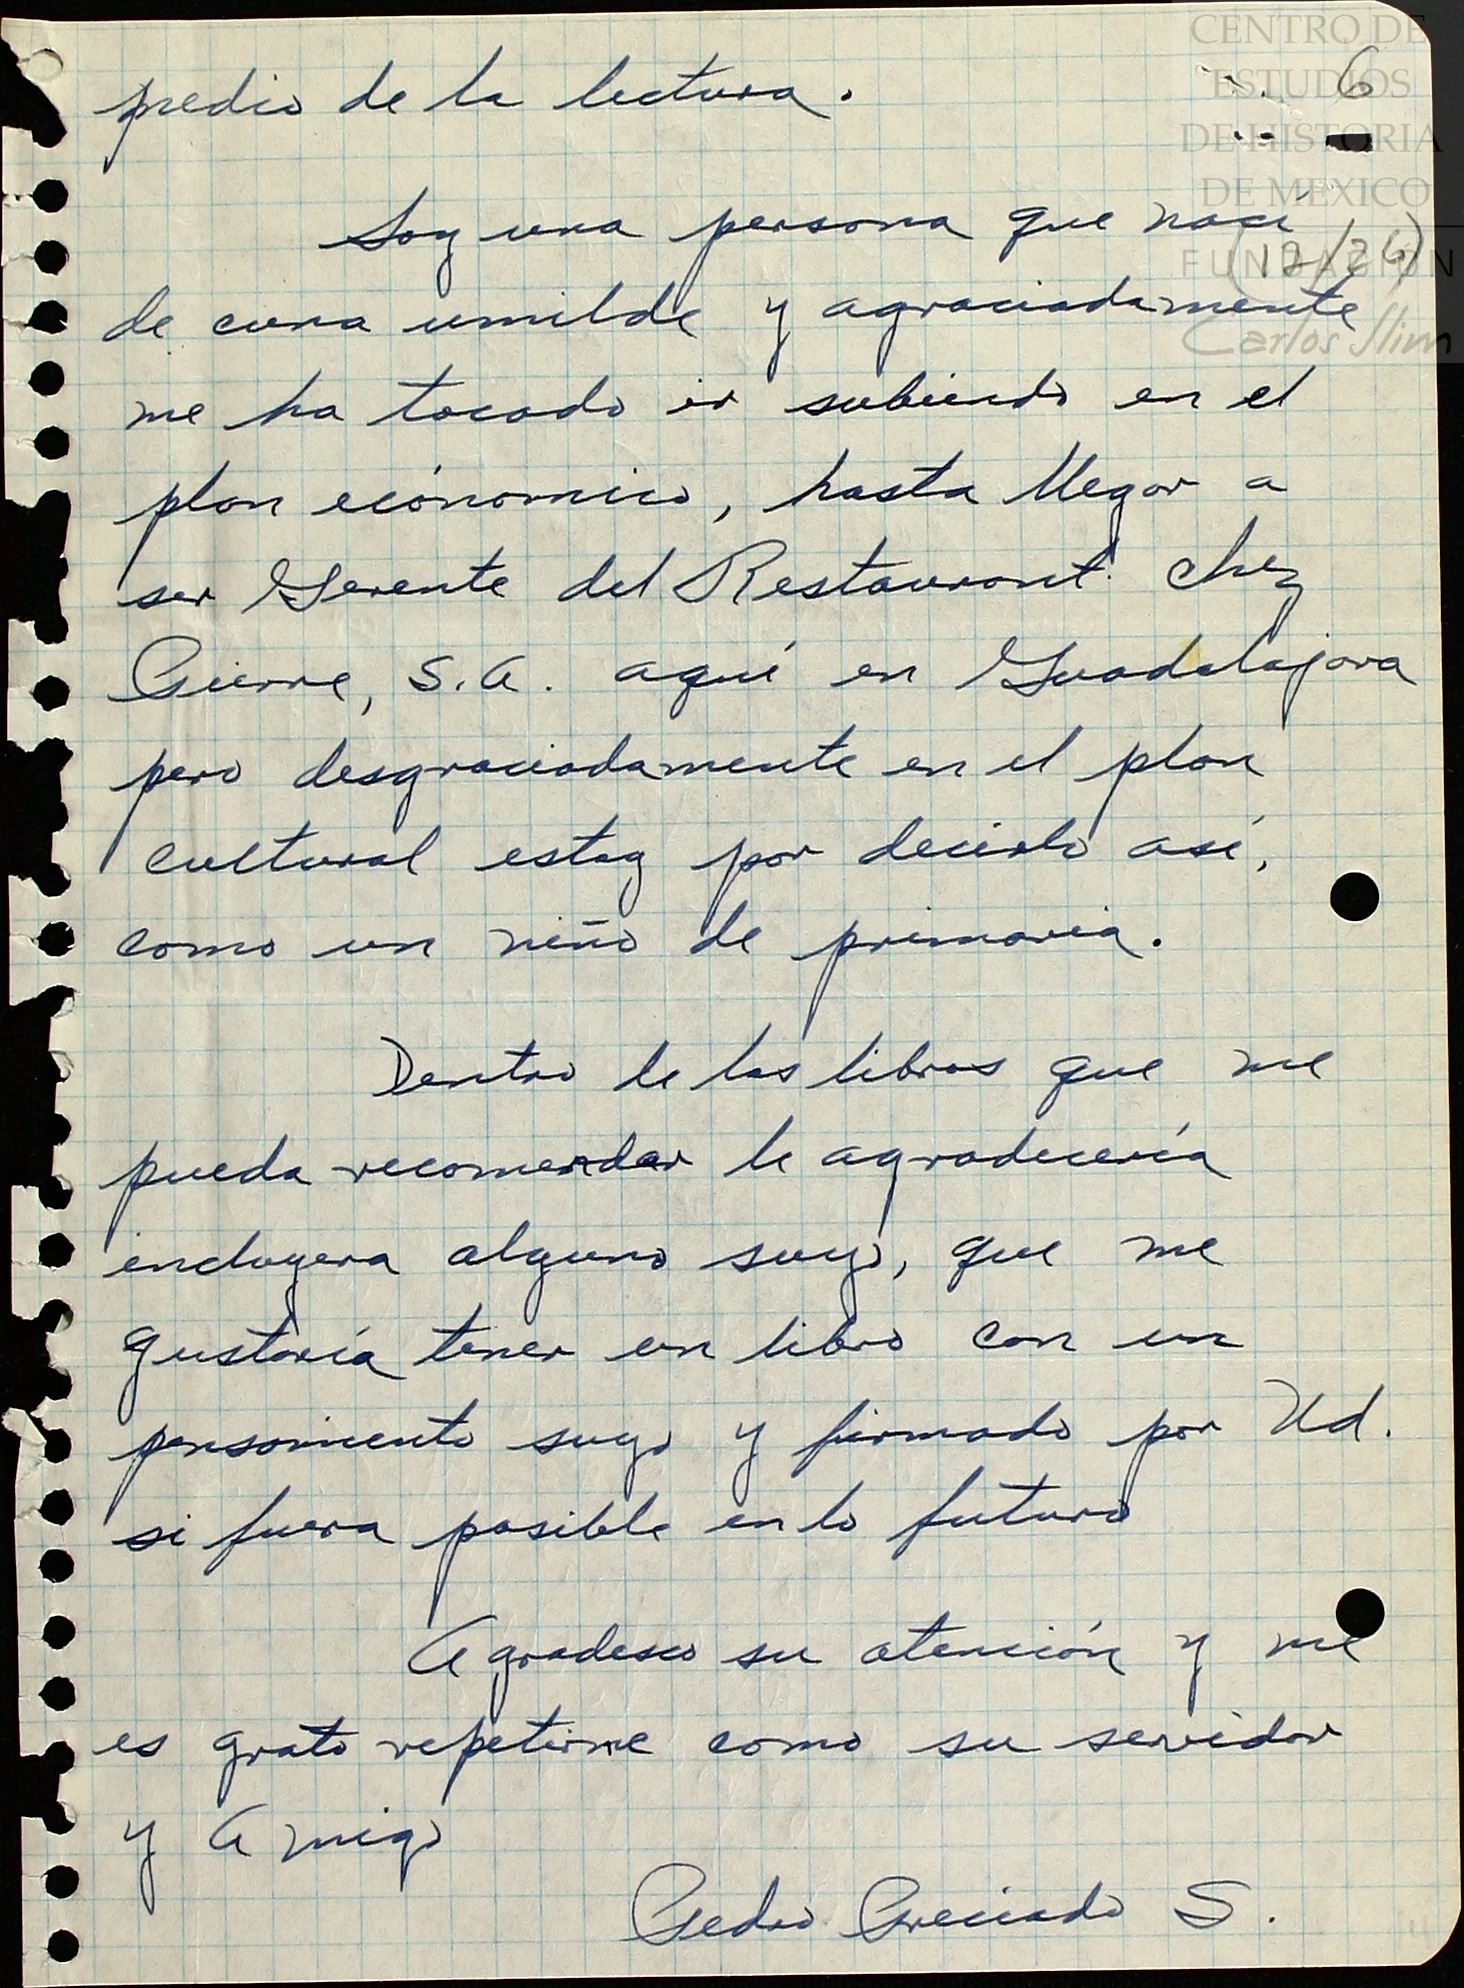 CENTRO DE
ESTUDIOS
DE HISTORIA
DE MEXICO
FUNDACIÓN
Carlos Slim
6
(12/26)
predio de la lectura.
Soy una persona que nací
de cuna umilde y agraciadamente
me ha tocado ir subiendo en el
plan ecónomico, hasta llegar a
ser Gerente del Restaurant Chez
Pierre, S.A. aquí en Guadalajara
pero desgraciadamente en el plan
cultural estoy por decirlo así,
como un niño de primaria.
Dentro de los libros que me
pueda recomendar le agradecería
incluyera alguno suyo, que me
gustaría tener un libro con un
pensamiento suyo y firmado por Ud.
si fuera posible en lo futuro
Agradesco su atención y me
es grato repetirme como su servidor
y Amigo
Pedro Preciado S.